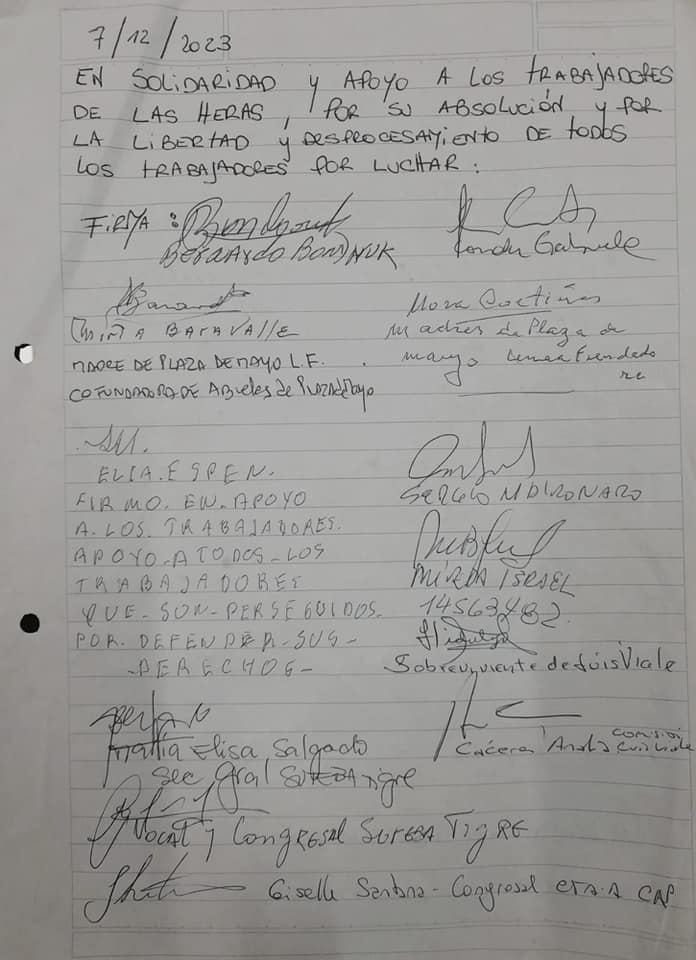 7/12/2023
EN SOLIDARIDAD y APOYO A LOS TRABAJADORES
DE LAS HERAS, POR SU ABSOLUCIÓN y POR
LA LIBERTAD y DESPROCESAMIENTO DE TODOS
LOS TRABAJADORES POR LUCHAR:
FIRMA:
BERNARDO
Gabriele
MIRTA BARAVALLE
MADRE DE PLAZA DE MAYO L.F.
COFUNDADORA DE Abuelas de Plaza de Mayo
Nora Cortiñas
Madres de Plaza de
mayo Linea Fundado
ra
ELIA.ESPEN.
FIRMO.EN.APOYO
A.LOS.TRABAJADORES.
APOYO-A TODOS-LOS
TRABAJADORES
QUE-SON-PERSEGUIDOS.
POR.DEFENDER-SUS-
-DERECHOS-
SERGIO
MIRDA ISRAEL
14563482.
Sobreviviente de Luis Viale
María Elisa Salgado
Sec Gral SUTEBA Tigre
Cáceres
comisión
Luis Viale
Vocal y Congresal SUTEBA TIGRE
Giselle Santana - Congresal CTA-A CAP